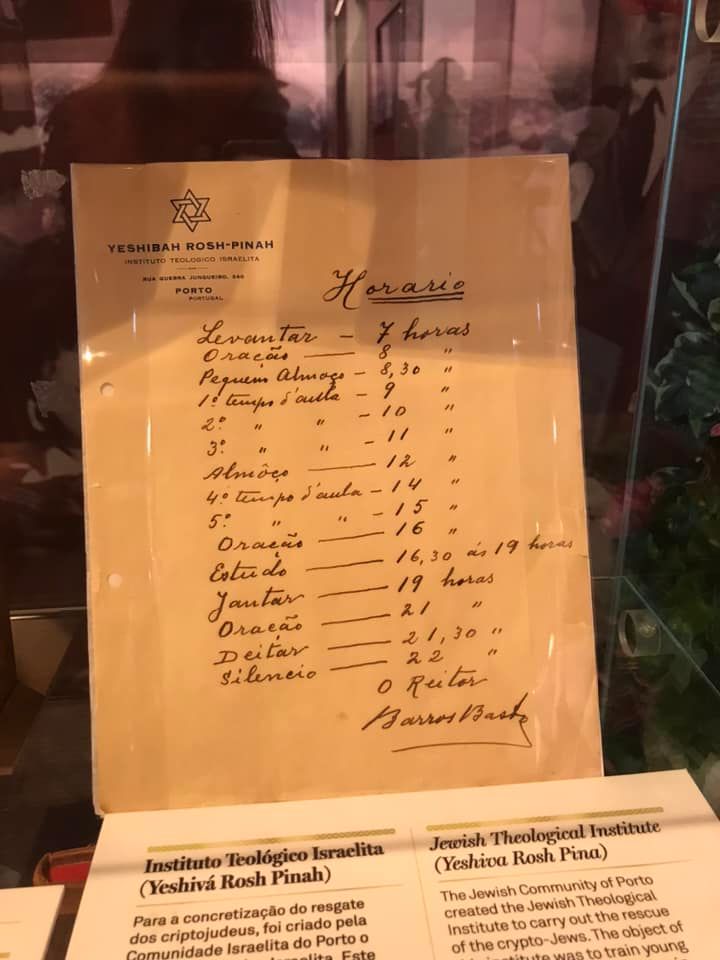 YESHIBAH ROSH-PINAH
INSTITUTO TEOLOGICO ISRAELITA
RUA GUERRA JUNQUEIRO, 340
PORTO
PORTUGAL
Horario
Levantar — 7 horas
Oração — 8 "
Pequeno Almoço — 8,30 "
1º tempo d'aula — 9 "
2º " " — 10 "
3º " " — 11 "
Almôço — 12 "
4º tempo d'aula — 14 "
5º " " — 15 "
Oração — 16 "
Estudo — 16,30 ás 19 horas
Jantar — 19 horas
Oração — 21 "
Deitar — 21,30 "
Silencio — 22 "
O Reitor
Barros Basto
Instituto Teológico Israelita
(Yeshivá Rosh Pinah)
Para a concretização do resgate
dos criptojudeus, foi criado pela
Comunidade Israelita do Porto o
Israelita. Este
Jewish Theological Institute
(Yeshiva Rosh Pina)
The Jewish Community of Porto
created the Jewish Theological
Institute to carry out the rescue
of the crypto-Jews. The object of
institute was to train young